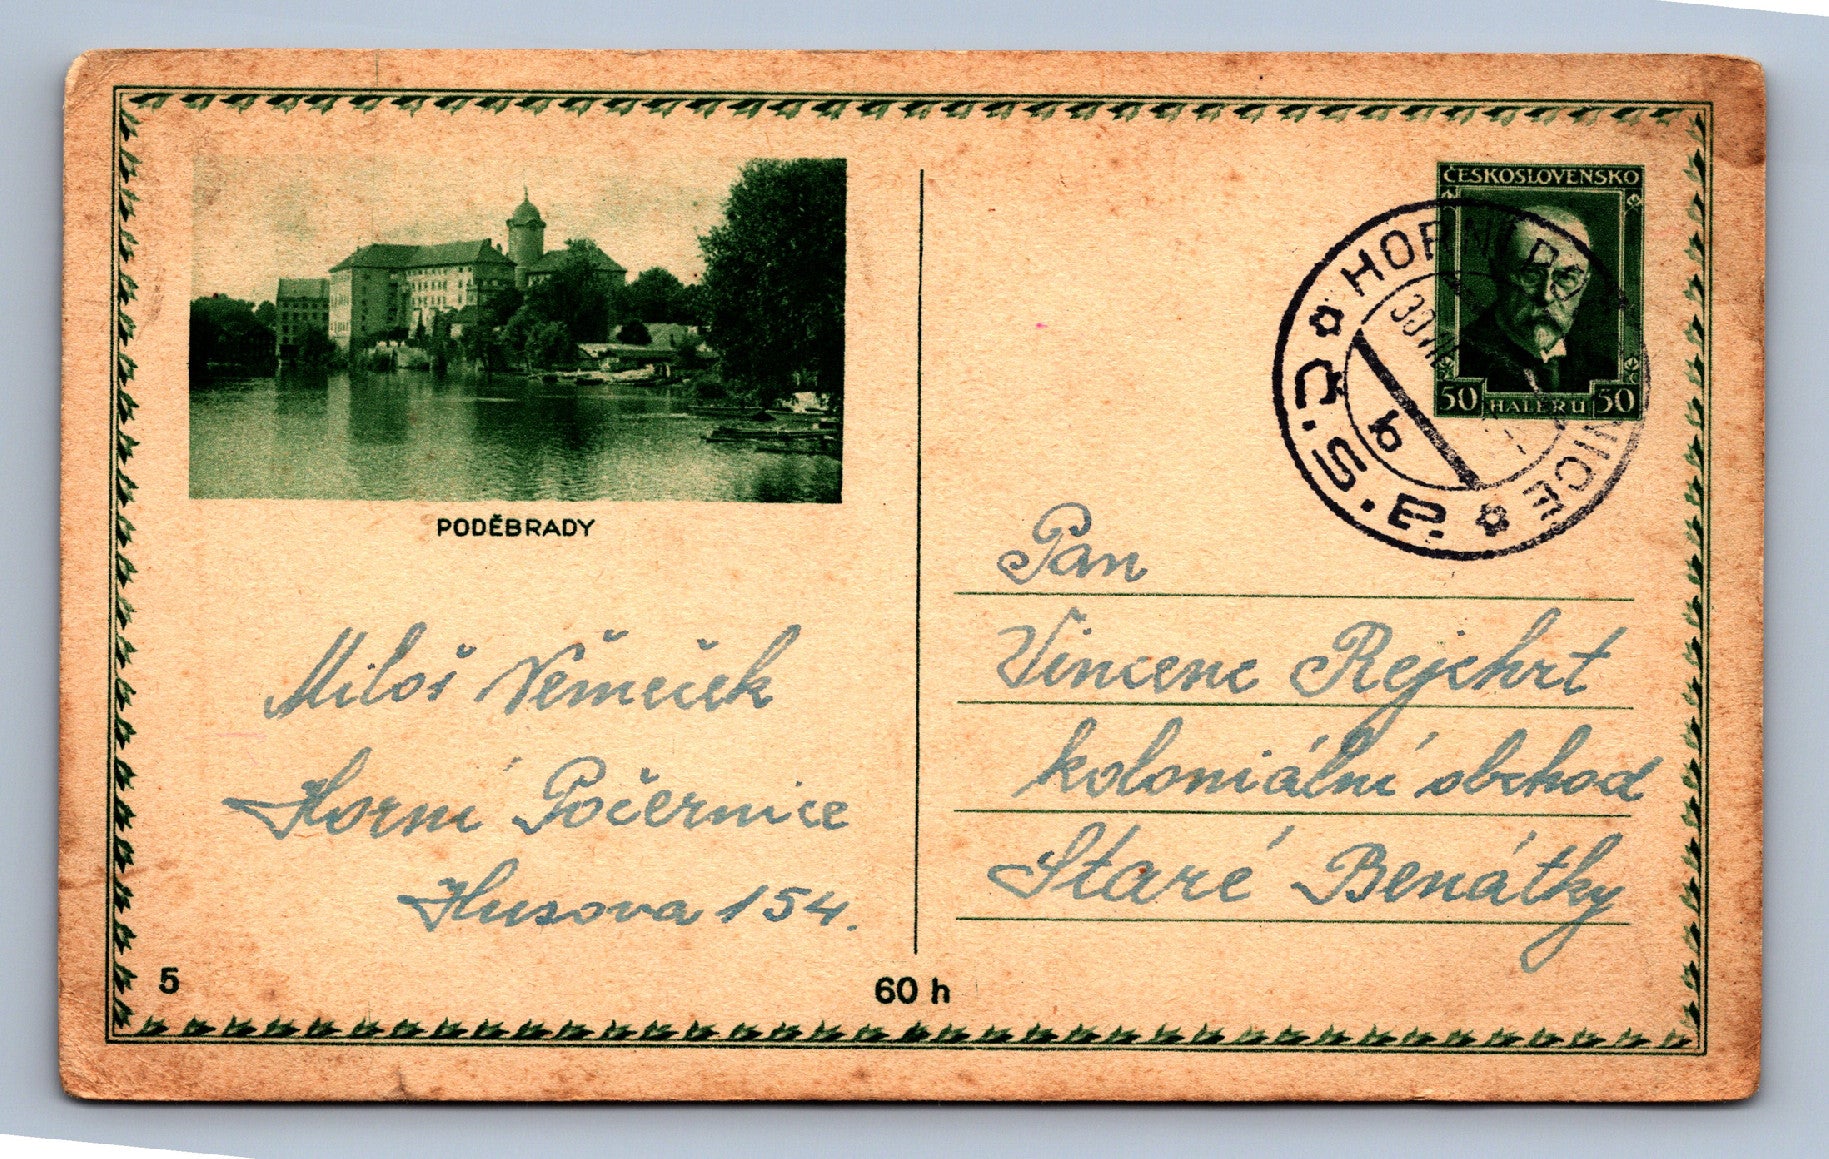 PODĚBRADY
Miloš Němeček
Horní Počernice
Husova 154.
5
60 h
ČESKOSLOVENSKO
50 HALÉŘŮ 50
HORNÍ POČERNICE
Č.S.P.
b
Pan
Vincenc Rejchrt
koloniální obchod
Staré Benátky